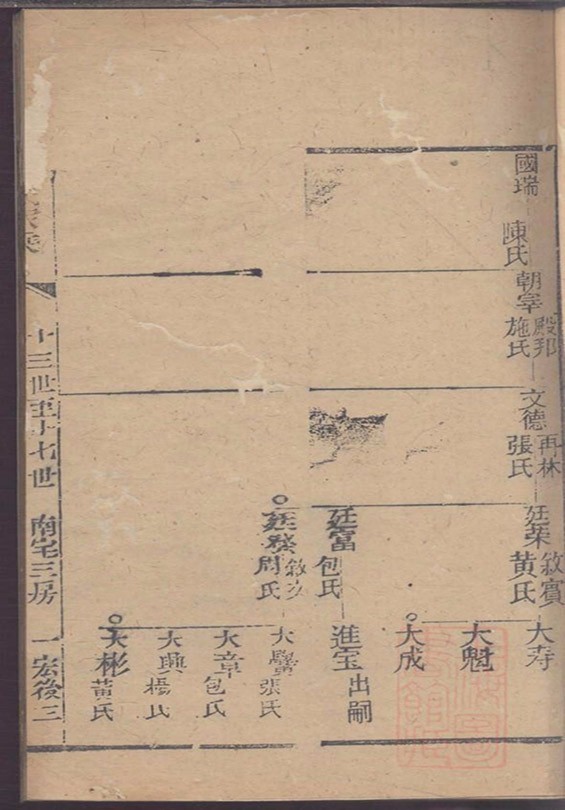 國瑞
陳氏
朝宰
殿邦
施氏
文德
再林
張氏
廷榮
敘賓
黃氏
廷富
包氏
廷發
周氏
大寿
大魁
大成
進玉
出嗣
大鸞
張氏
大章
包氏
大興
楊氏
大彬
黃氏
十三世至十七世
南宅三房
一宏後三